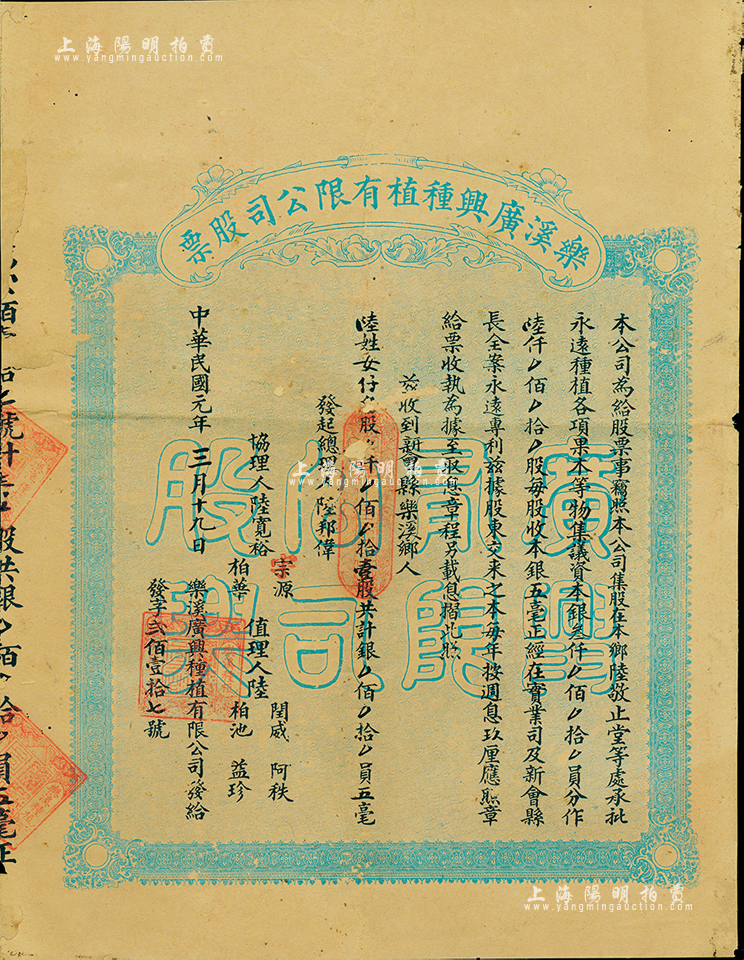 上海陽明拍賣
www.yangmingauction.com
樂溪廣興種植有限公司股票
本公司為給股票事竊照本公司集股在本鄉陸敬止堂等處承批
永遠種植各項果木等物集議資本銀叁仟〇佰〇拾〇員分作
陸仟〇佰〇拾〇股每股收本銀五毫正經在實業司及新會縣
長全案永遠專利茲據股東交来之本每年按週息玖厘應熙章
給票收執為據至收息章程另載息摺此照
茲收到新會縣樂溪鄉人
陸姓女仔 股〇仟〇佰〇拾壹股共計銀〇佰〇拾〇員五毫
發起總理人陸邦偉
協理人陸寬裕 宗源 柏華
值理人陸 閏威 阿秩 柏池 益珍
中華民國元年 三月十九日
樂溪廣興種植有限公司發給
發字弍佰壹拾七號
廣興種植
有限公司
股
佰 拾七號計 股共銀〇佰〇拾〇員五毫正
上海陽明拍賣
www.yangmingauction.com
上海陽明拍賣
www.yangmingauction.com